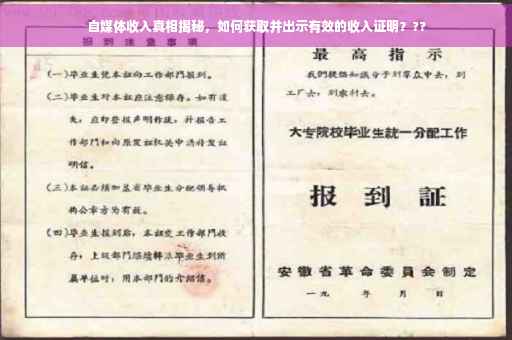 自媒体收入真相揭秘，如何获取并出示有效的收入证明？??
报到注意事项
(一)毕业生凭本证向工作部門报到。
(二)毕业生对本证应注意保存。如有遗
失，应即登报声明作废，并报告工
作部門和向原发证机关申請补发证
明信。
(三)本证必须加盖省毕业生分配領导机
构公章方为有效。
(四)毕业生报到后，本证交工作部門收
存，上级部門
毕业生到所
属单位时，用本部門的介紹信。
最高指示
我們提倡知識分子到羣众中去，到
工厂去，到农村去。
大专院校毕业生統一分配工作
报到証
安徽省革命委員会制定
一九 年 月 日